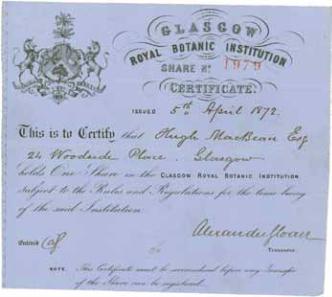 GLASGOW
ROYAL BOTANIC INSTITUTION
SHARE No. 1979
CERTIFICATE.
ISSUED 5th April 1872.
This is to Certify that Hugh MacBean Esq
24 Woodside Place. Glasgow
holds One Share in the GLASGOW ROYAL BOTANIC INSTITUTION
subject to the Rules and Regulations for the time being
of the said Institution.
Entered
TREASURER.
NOTE. This Certificate must be surrendered before any Transfer
of the Share can be registered.